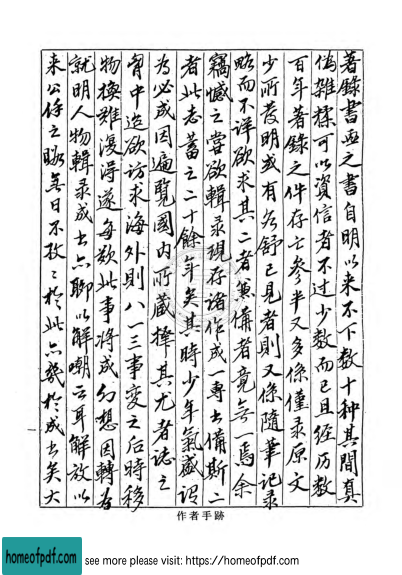 著錄書画之書自明以来不下数十种其間真
偽雜揉可以資信者不过少数而已且經历数
百年著錄之件存亡參半又多係僅录原文
少所發明或有各舒己見者則又係隨筆记录
略而不详欲求其二者兼備者竟無一焉余
竊憾之嘗欲輯录現存诸作成一专书備斯二
者此志蓄之二十餘年矣其時少年氣盛谓
為必成因遍覽國内所藏擇其尤者誌之
胷中迨欲访求海外則八一三事变之后時移
物换難復得遂每歎此事将成幻想因轉為
就明人物輯录成书亦聊以解嘲云耳解放以
来公馀之暇無日不孜〻於此亦幾於成书矣大
作者手跡
homeofpdf.com
see more please visit: https://homeofpdf.com